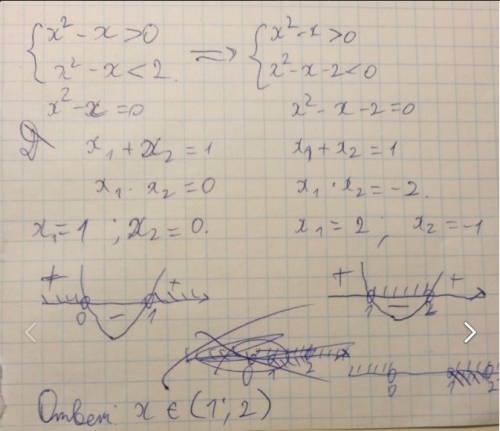 { x² - x > 0 => { x² - x > 0
x² - x < 2 x² - x - 2 < 0
x² - x = 0 x² - x - 2 = 0
D x₁ + x₂ = 1 x₁ + x₂ = 1
x₁ · x₂ = 0 x₁ · x₂ = -2.
x₁ = 1 ; x₂ = 0. x₁ = 2 ; x₂ = -1
+ - + + - +
0 1 1 2
0 1 2
0 1 2
Ответ: x ∈ (1; 2)